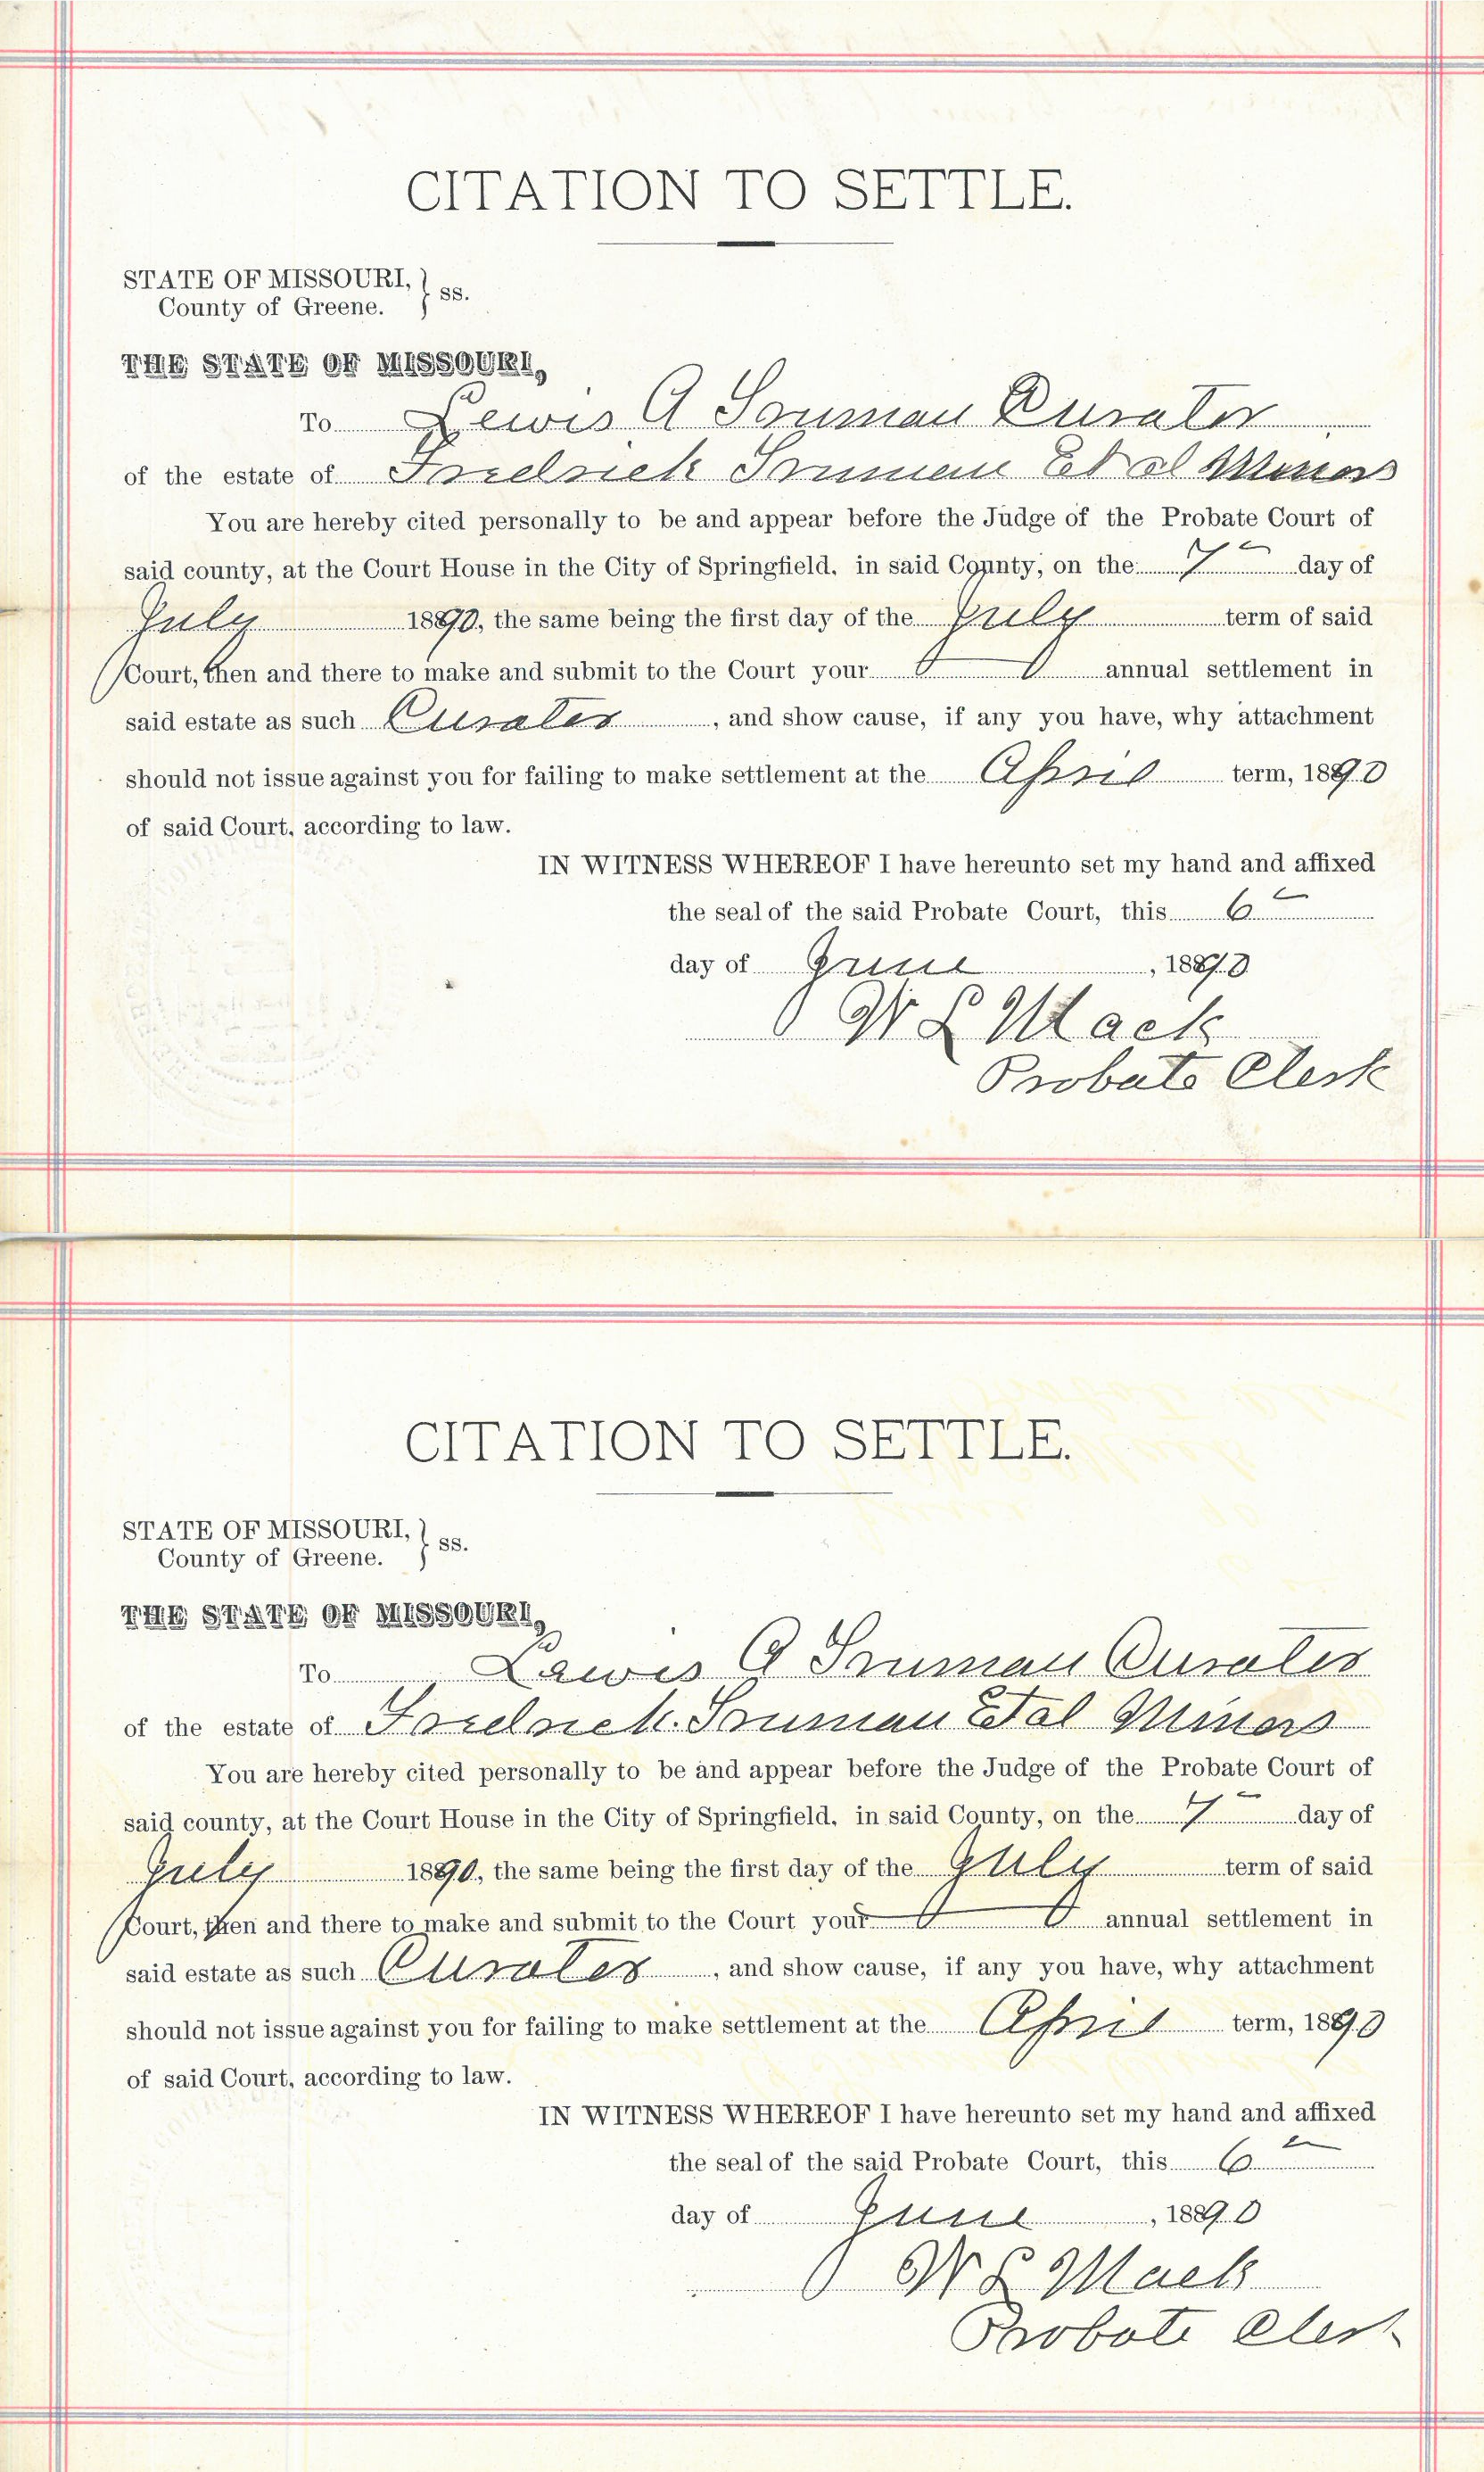 CITATION TO SETTLE.
STATE OF MISSOURI, } ss.
County of Greene.
THE STATE OF MISSOURI,
To Lewis A Truman Curator
of the estate of Fredrick Truman Et al Minors
You are hereby cited personally to be and appear before the Judge of the Probate Court of
said county, at the Court House in the City of Springfield, in said County, on the 7th day of
July 1890, the same being the first day of the July term of said
Court, then and there to make and submit to the Court your annual settlement in
said estate as such Curator, and show cause, if any you have, why attachment
should not issue against you for failing to make settlement at the April term, 1890
of said Court, according to law.
IN WITNESS WHEREOF I have hereunto set my hand and affixed
the seal of the said Probate Court, this 6th
day of June, 1890
W L Mack
Probate Clerk
CITATION TO SETTLE.
STATE OF MISSOURI, } ss.
County of Greene.
THE STATE OF MISSOURI,
To Lewis A Truman Curator
of the estate of Fredrick Truman Et al Minors
You are hereby cited personally to be and appear before the Judge of the Probate Court of
said county, at the Court House in the City of Springfield, in said County, on the 7th day of
July 1890, the same being the first day of the July term of said
Court, then and there to make and submit to the Court your annual settlement in
said estate as such Curator, and show cause, if any you have, why attachment
should not issue against you for failing to make settlement at the April term, 1890
of said Court, according to law.
IN WITNESS WHEREOF I have hereunto set my hand and affixed
the seal of the said Probate Court, this 6th
day of June, 1890
W L Mack
Probate Clerk